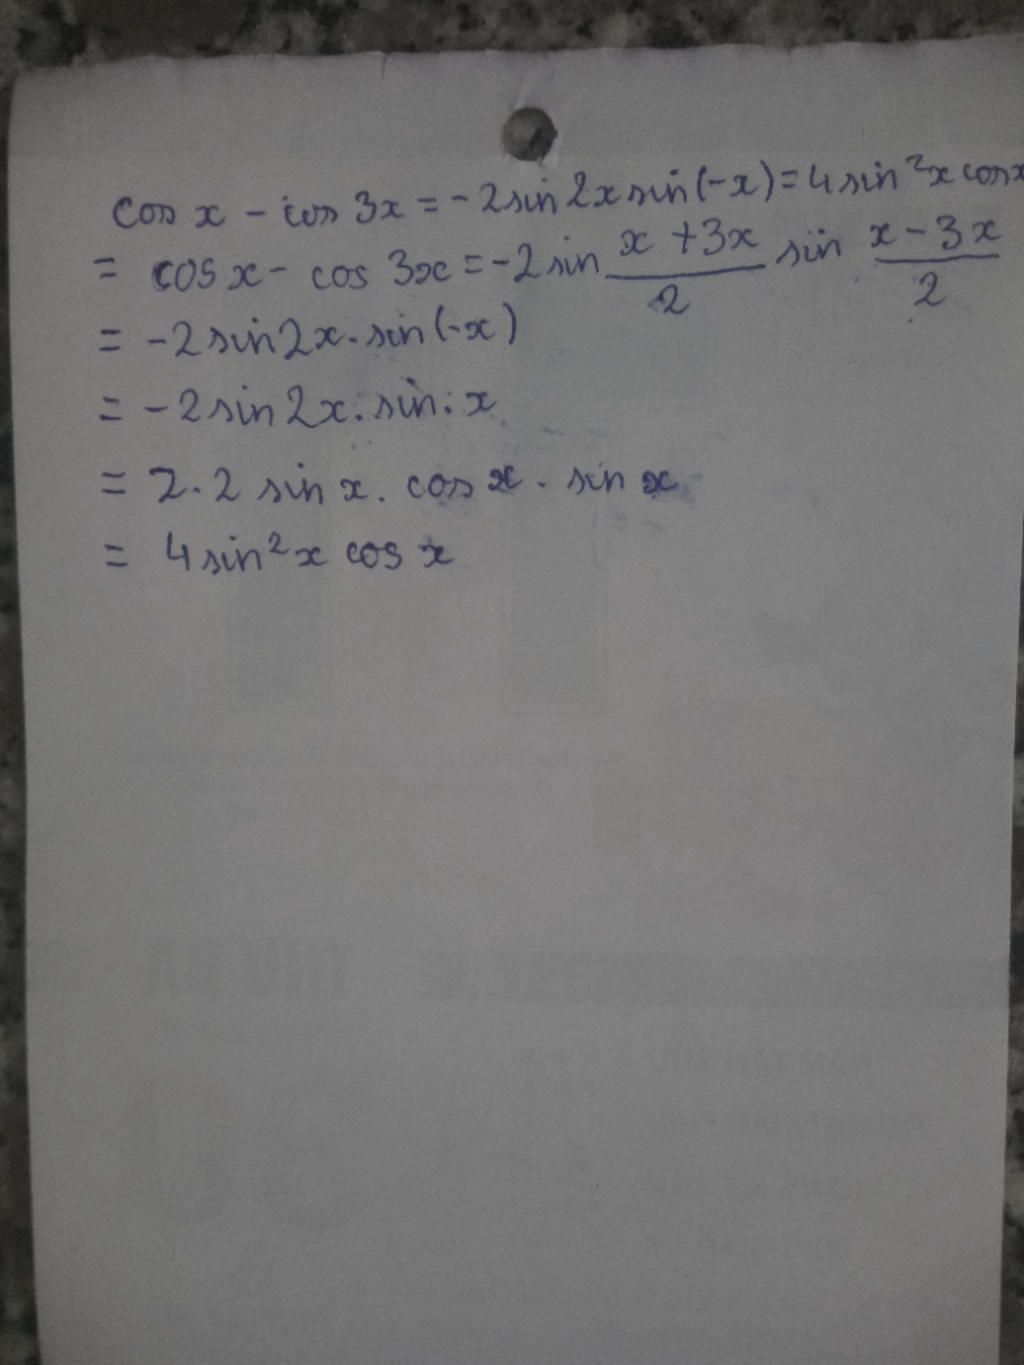 cos x - cos 3x = -2 sin 2x sin(-x) = 4 sin²x cos x
= cos x - cos 3x = -2 sin \frac{x + 3x}{2} sin \frac{x - 3x}{2}
= -2 sin 2x . sin(-x)
= -2 sin 2x . sin . x
= 2 . 2 sin x . cos x . sin x
= 4 sin²x cos x